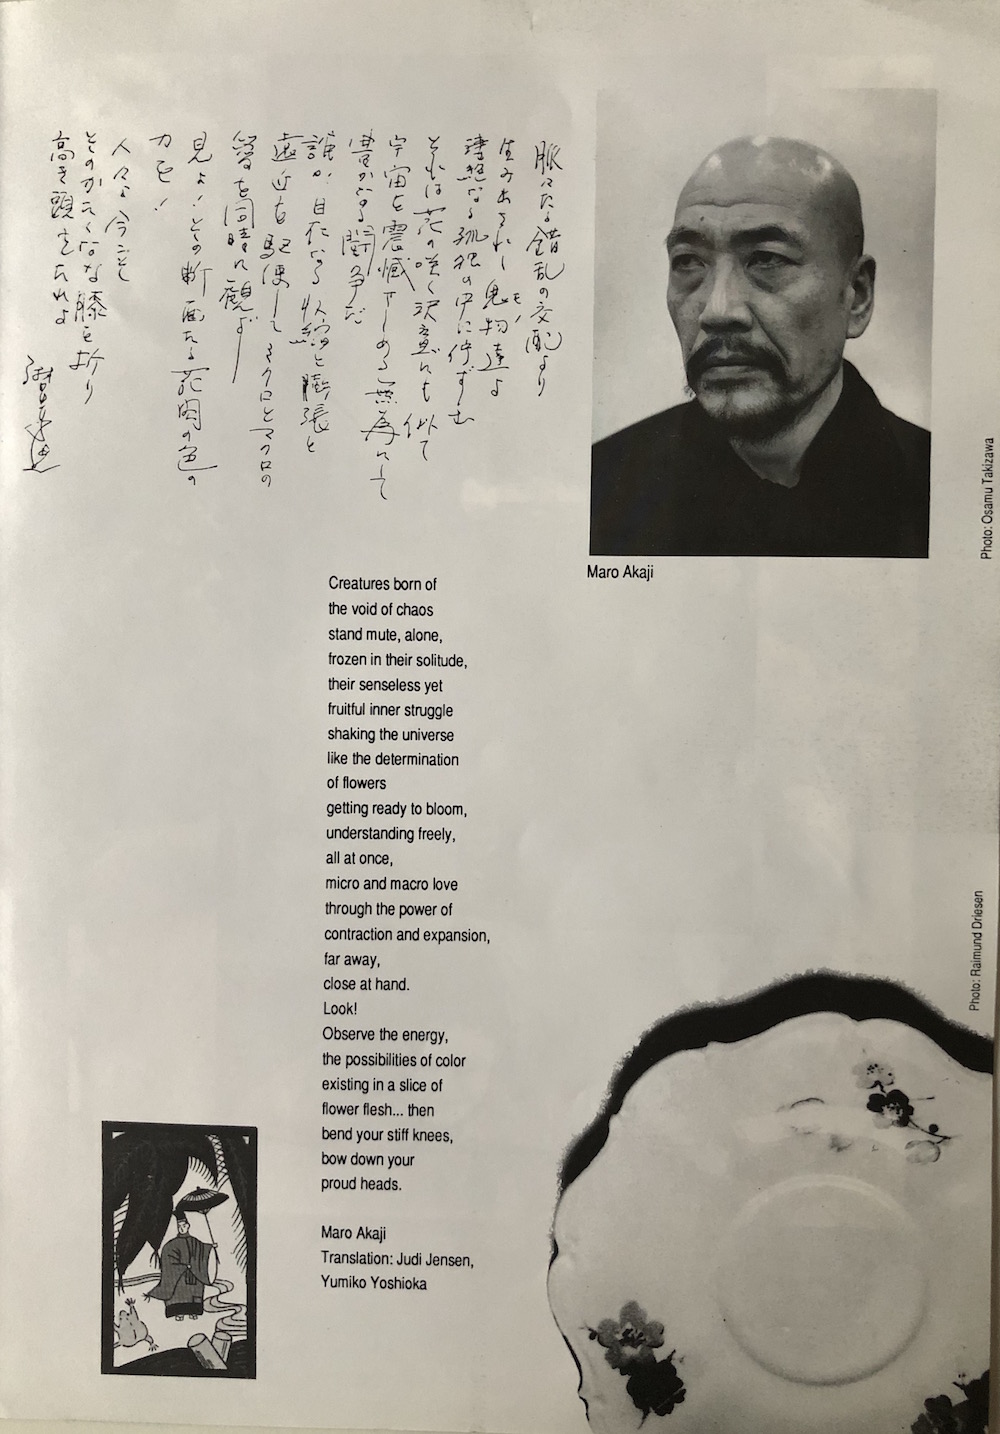 脈々たる錯乱の交配より
鬼物達よ
モノ
なる孤独の中に佇ずむ
それは花の咲く決意にも似て
宇宙を震憾せしめる無為にして
豊かなる闘争だ
誰か自在なる収縮と膨張と
遠近を駆使してミクロとマクロの
愛を同時に観ず
見よ!その断面たる花肉の色の
力を!
人々よ今こそ
そのかたくなな膝を折り
高き頭をたれよ
Photo: Osamu Takizawa
Maro Akaji
Creatures born of
the void of chaos
stand mute, alone,
frozen in their solitude,
their senseless yet
fruitful inner struggle
shaking the universe
like the determination
of flowers
getting ready to bloom,
understanding freely,
all at once,
micro and macro love
through the power of
contraction and expansion,
far away,
close at hand.
Look!
Observe the energy,
the possibilities of color
existing in a slice of
flower flesh... then
bend your stiff knees,
bow down your
proud heads.
Maro Akaji
Translation: Judi Jensen,
Yumiko Yoshioka
Photo: Raimund Driesen